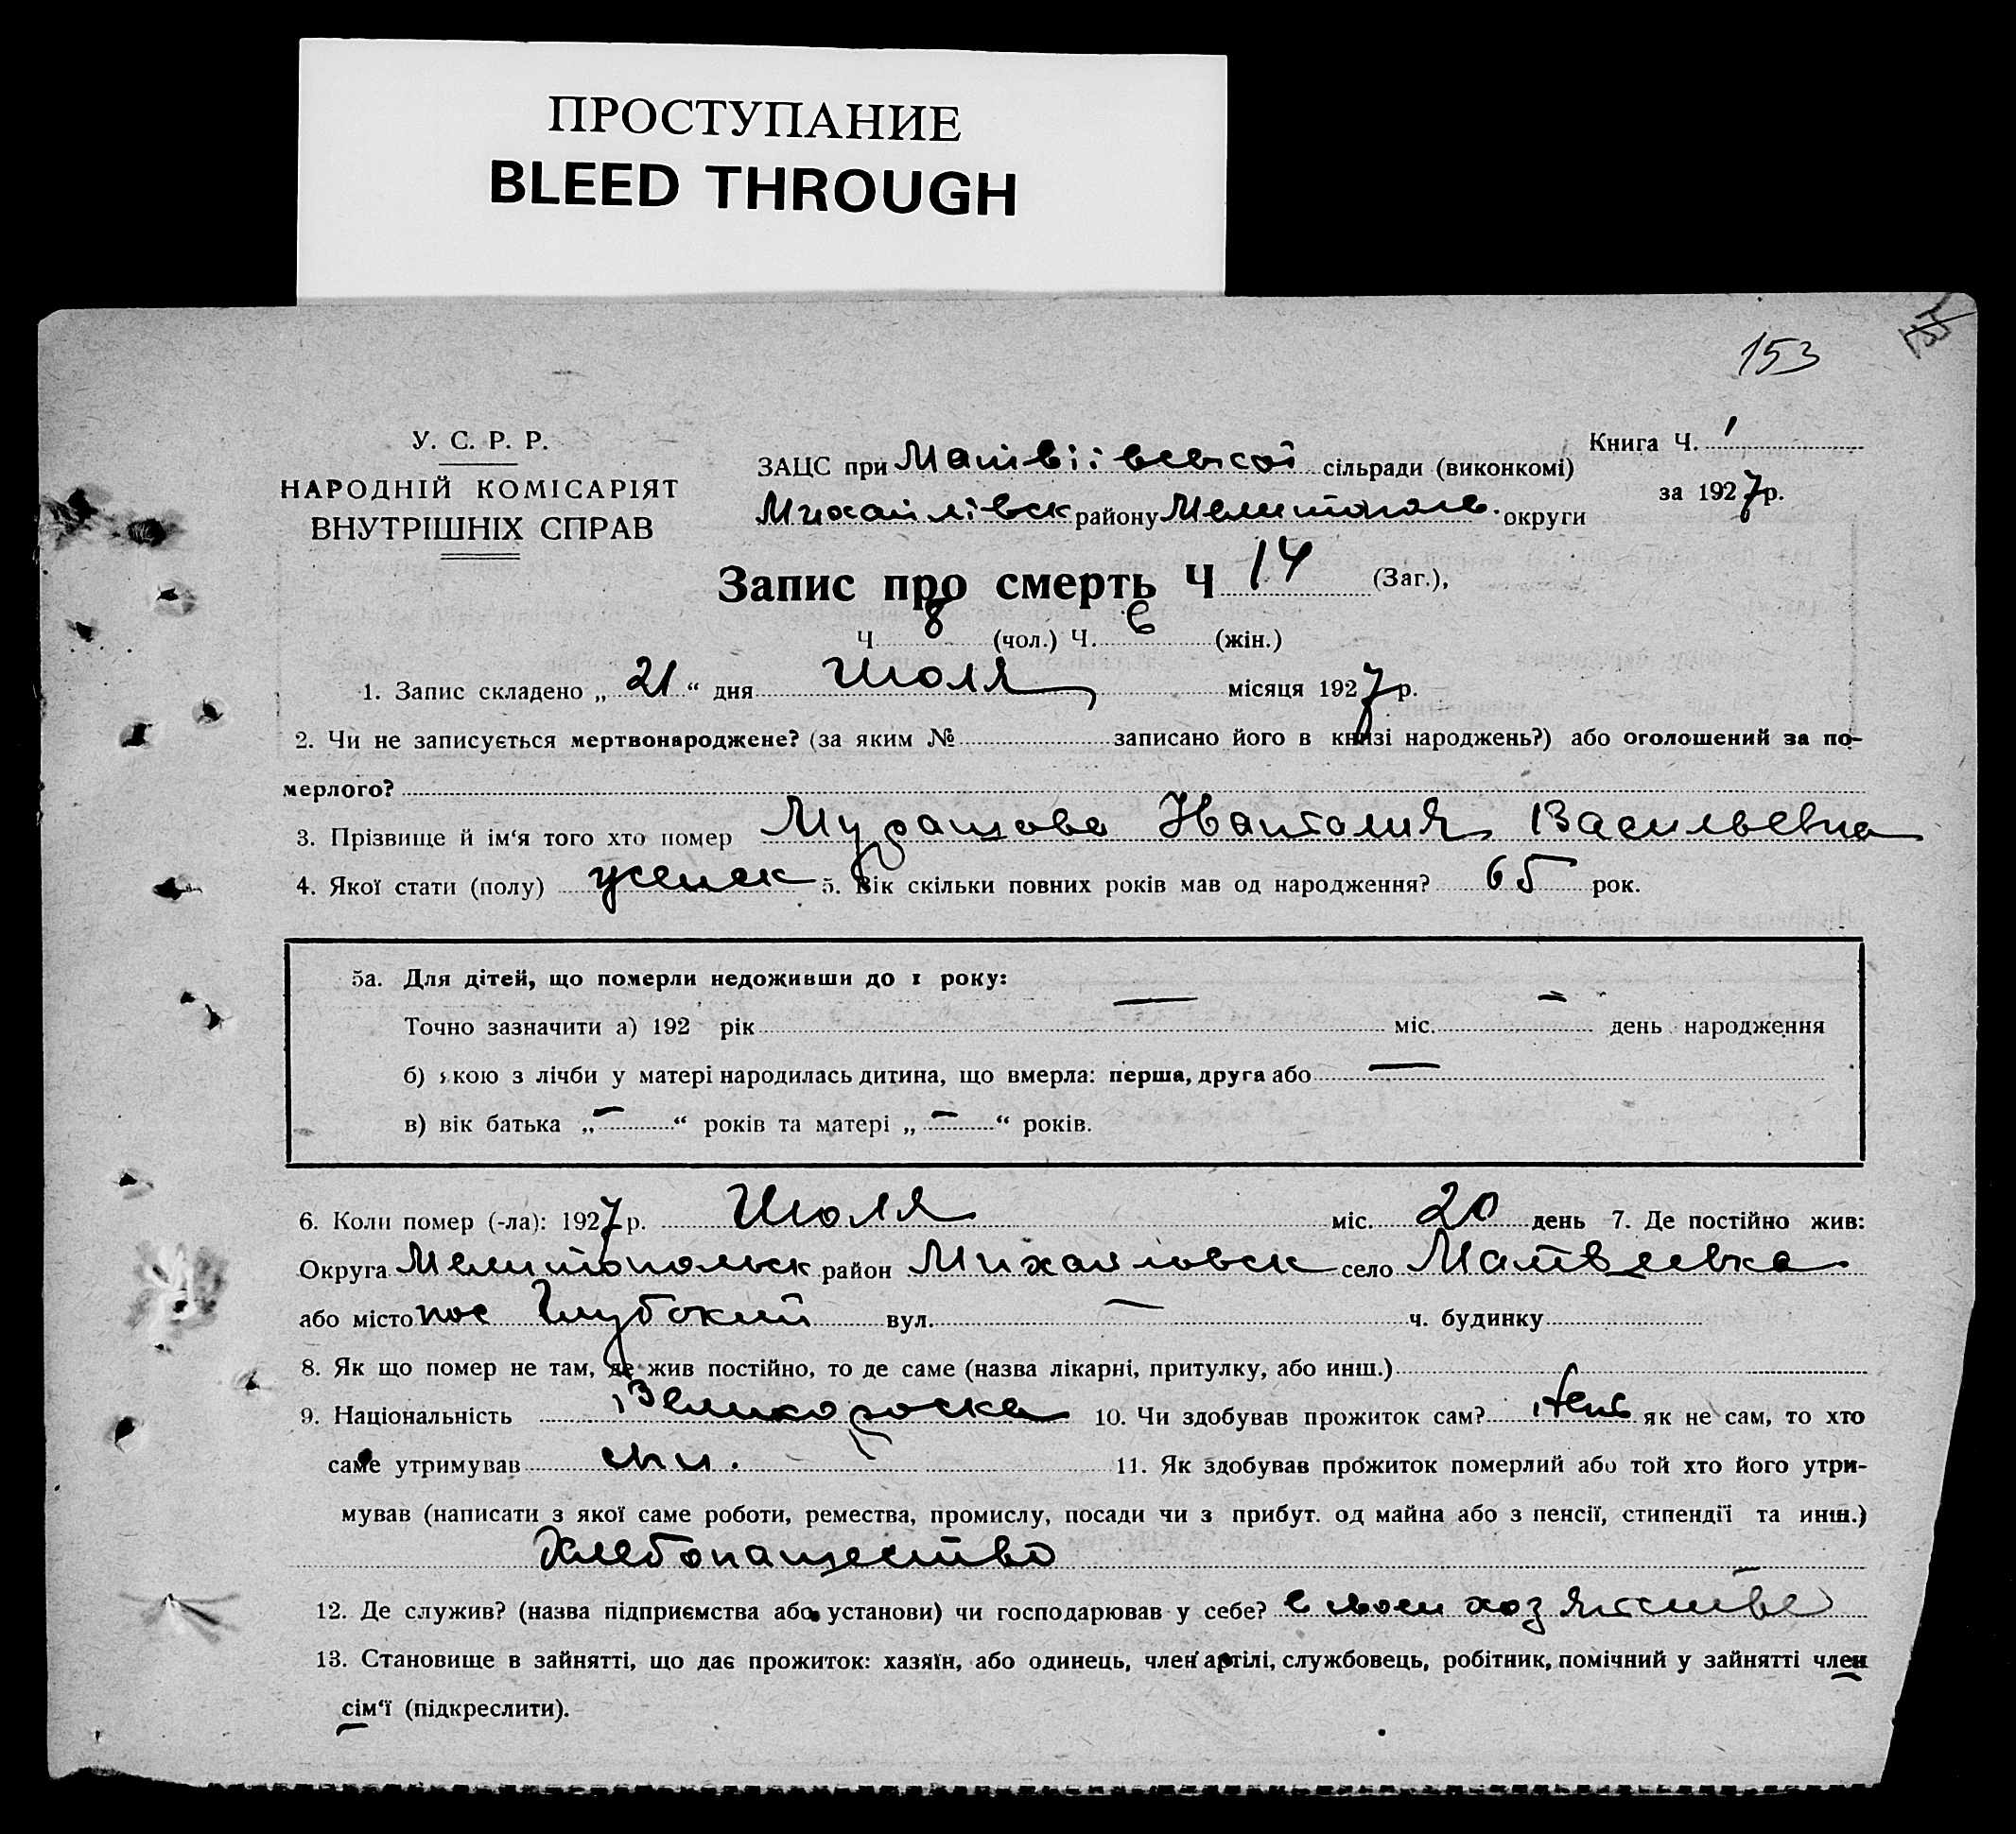 ПРОСТУПАНИЕ
BLEED THROUGH
153
У. С. Р. Р.
НАРОДНІЙ КОМІСАРІЯТ
ВНУТРІШНІХ СПРАВ
Книга Ч. 1
за 1927 р.
ЗАЦС при Матвіївської сільради (виконкомі)
Михайлівск району Мелитополь. округи
Запис про смерть Ч 14 (Заг.),
Ч 8 (чол.) Ч. 6 (жін.)
1. Запис складено „ 21 “ дня Июля місяця 1927 р.
2. Чи не записується мертвонароджене? (за яким № записано його в книзі народжень?) або оголошений за по-
мерлого?
3. Прізвище й ім‘я того хто помер Мурашова Наталия Васильевна
4. Якої стати (полу) женск 5. Вік скільки повних років мав од народження? 65 рок.
5а. Для дітей, що померли недоживши до 1 року:
Точно зазначити а) 192 рік — міс. — день народження
б) якою з лічби у матері народилась дитина, що вмерла: перша, друга або —
в) вік батька „ — “ років та матері „ — “ років.
6. Коли помер (-ла): 1927 р. Июля міс. 20 день 7. Де постійно жив:
Округа Мелитопольск район Михайловск село Матвеевка
або місто пос Глубокий вул. — ч. будинку
8. Як що помер не там, де жив постійно, то де саме (назва лікарні, притулку, або инш.)
9. Національність Великороска 10. Чи здобував прожиток сам? як не сам, то хто
саме утримував сын. 11. Як здобував прожиток померлий або той хто його утри-
мував (написати з якої саме роботи, ремества, промислу, посади чи з прибут. од майна або з пенсії, стипендії та инш.)
Хлебопашество
12. Де служив? (назва підприємства або установи) чи господарював у себе? в своем хозяйстве
13. Становище в зайнятті, що дає прожиток: хазяїн, або одинець, член артілі, службовець, робітник, помічний у зайнятті член
сім‘ї (підкреслити).